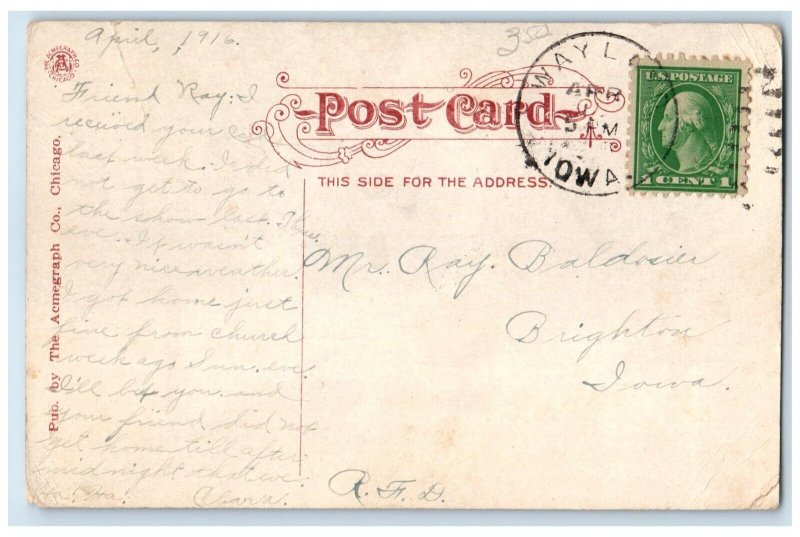 April, 1916.
350
Friend Ray: I
received your card
last week. I did
not get to go to
the show last Thurs.
eve. It wasn't
very nice weather.
I got home just
fine from church
week ago Sun. eve.
I'll bet you and
your friend did not
get home till after
midnight that eve.
Clara.
THE ACMEGRAPH CO.
CHICAGO
Pub. by The Acmegraph Co., Chicago.
Post Card
THIS SIDE FOR THE ADDRESS.
WAYL
APR
5 AM
IOWA
U.S. POSTAGE
1 CENT 1
Mr. Ray Baldosier
Brighton
Iowa.
R. F. D.